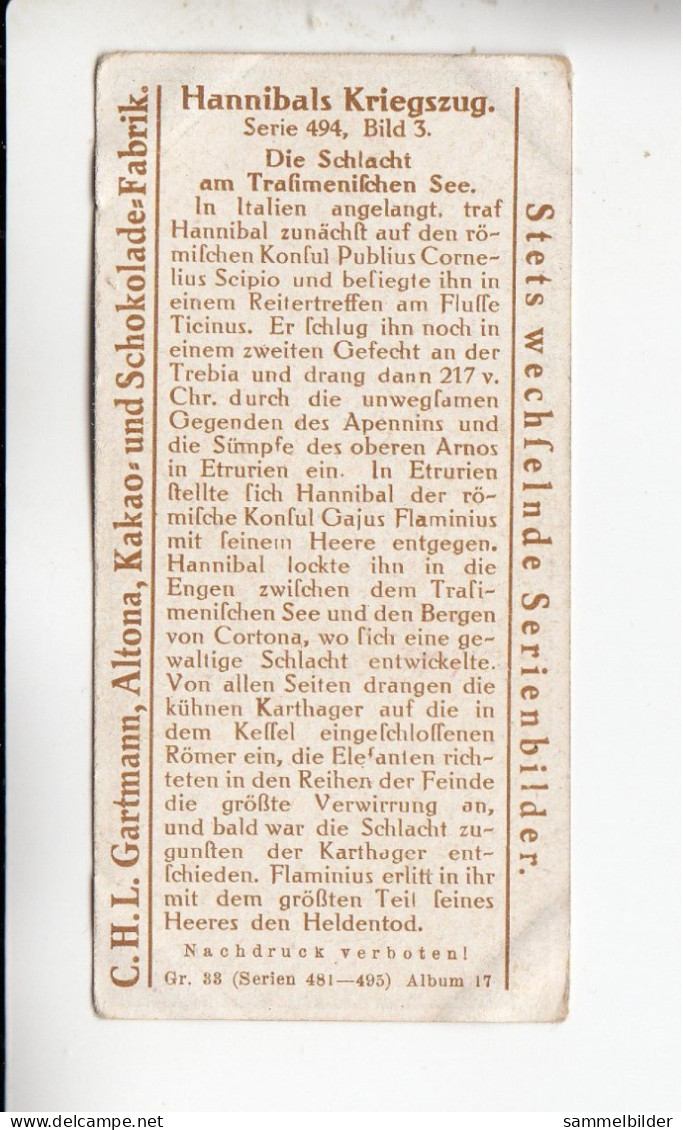 C.H.L. Gartmann, Altona, Kakao- und Schokolade-Fabrik.
Hannibals Kriegszug.
Serie 494, Bild 3.
Die Schlacht
am Traſimeniſchen See.
In Italien angelangt, traf
Hannibal zunächſt auf den rö-
miſchen Konſul Publius Corne-
lius Scipio und beſiegte ihn in
einem Reitertreffen am Fluſſe
Ticinus. Er ſchlug ihn noch in
einem zweiten Gefecht an der
Trebia und drang dann 217 v.
Chr. durch die unwegſamen
Gegenden des Apennins und
die Sümpfe des oberen Arnos
in Etrurien ein. In Etrurien
ſtellte ſich Hannibal der rö-
miſche Konſul Gajus Flaminius
mit ſeinem Heere entgegen.
Hannibal lockte ihn in die
Engen zwiſchen dem Traſi-
meniſchen See und den Bergen
von Cortona, wo ſich eine ge-
waltige Schlacht entwickelte.
Von allen Seiten drangen die
kühnen Karthager auf die in
dem Keſſel eingeſchloſſenen
Römer ein, die Elefanten rich-
teten in den Reihen der Feinde
die größte Verwirrung an,
und bald war die Schlacht zu-
gunſten der Karthager ent-
ſchieden. Flaminius erlitt in ihr
mit dem größten Teil ſeines
Heeres den Heldentod.
Nachdruck verboten!
Gr. 33 (Serien 481—495) Album 17
Stets wechſelnde Serienbilder.
delcampe.net
sammelbilder